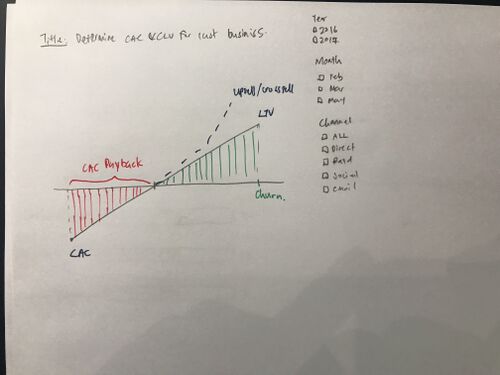 Title: Determine CAC & CLV for cust business.
Year
2016
2017
Month
Feb
Mar
May
Channel
ALL
Direct
Paid
Social
email
upsell/crosssell
LTV
CAC Payback
Churn.
CAC